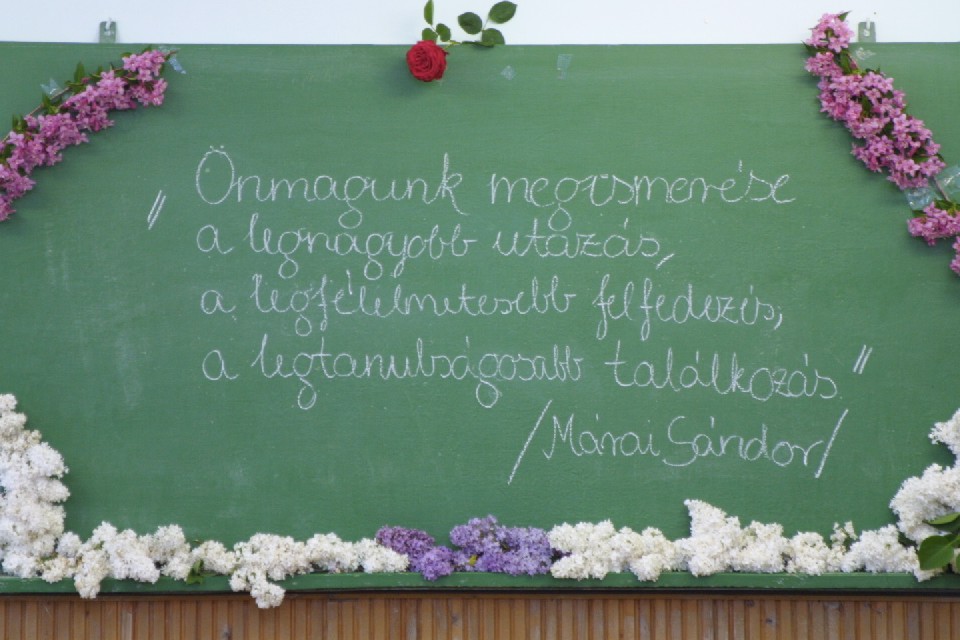 „ Önmagunk megismerése
a legnagyobb utazás,
a legfélelmetesebb felfedezés,
a legtanulságosabb találkozás."
/Márai Sándor/